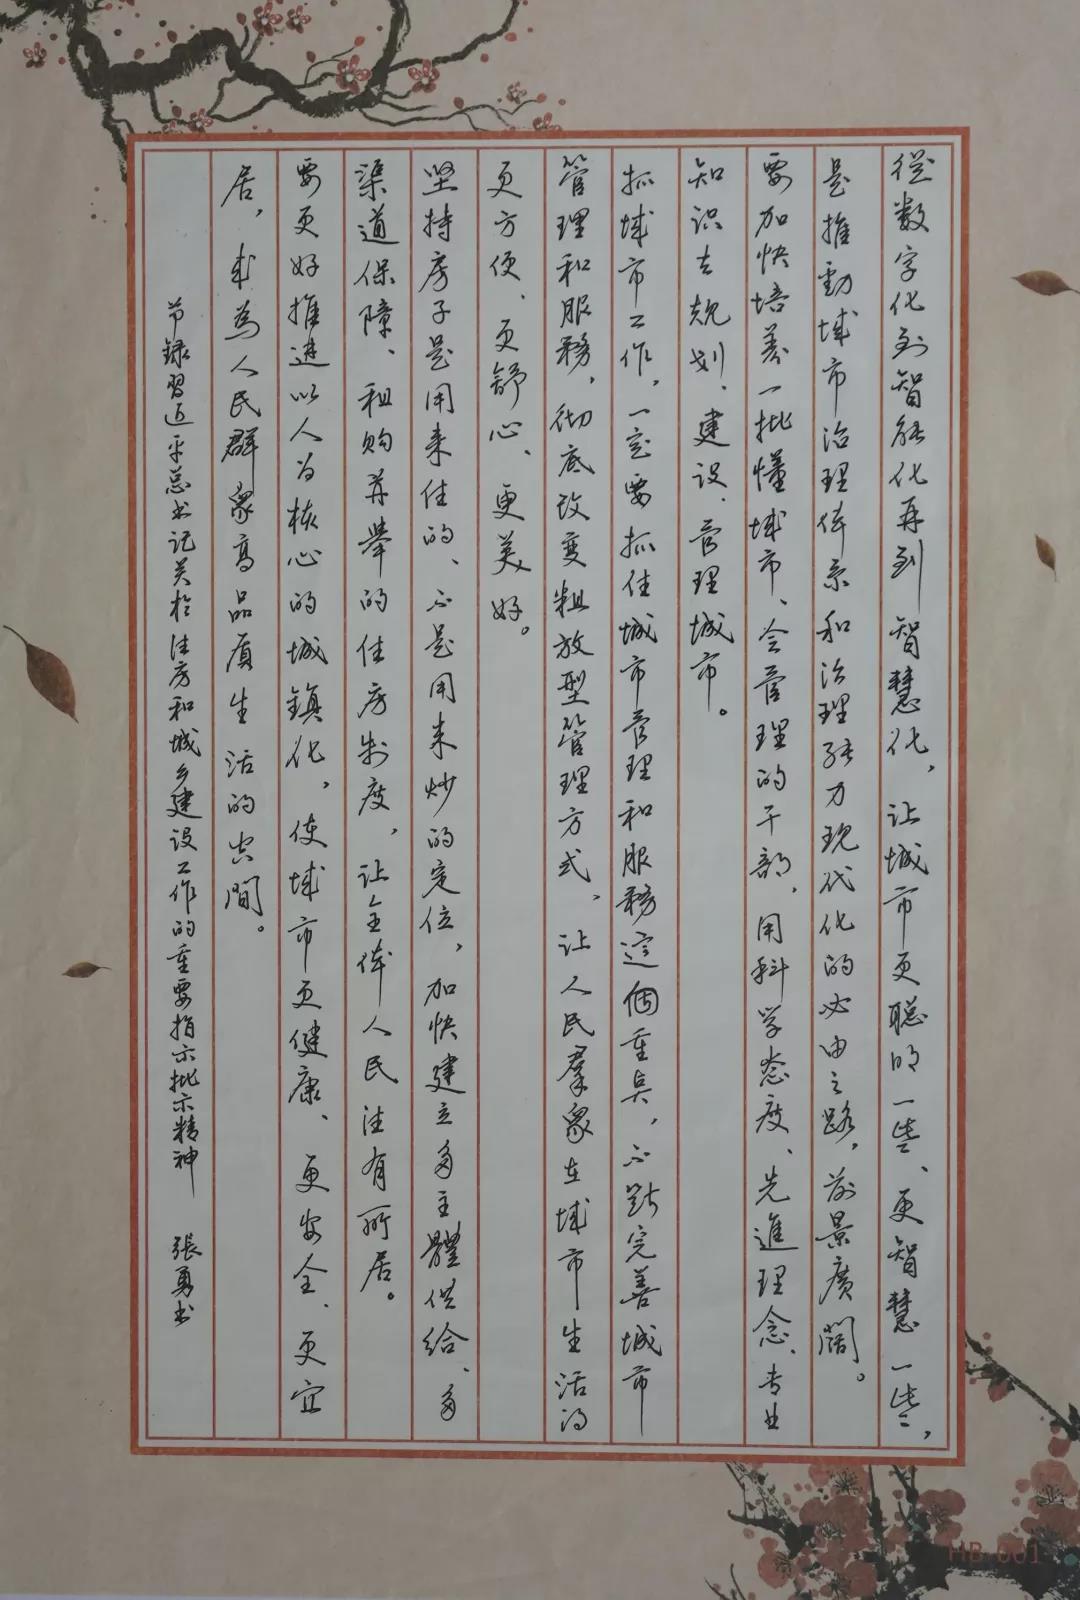 從数字化到智能化再到智慧化，让城市更聪明一些、更智慧一些，
是推動城市治理体系和治理能力现代化的必由之路，前景廣闊。
要加快培养一批懂城市、会管理的干部，用科学态度、先進理念、专业
知识去规划、建设、管理城市。
抓城市工作，一定要抓住城市管理和服務这個重点，不断完善城市
管理和服務，彻底改变粗放型管理方式，让人民羣衆在城市生活的
更方便、更舒心、更美好。
坚持房子是用来住的、不是用来炒的定位，加快建立多主體供给、多
渠道保障、租购并舉的住房制度，让全体人民住有所居。
要更好推进以人为核心的城鎮化，使城市更健康、更安全、更宜
居，成為人民群衆高品质生活的空間。
节録習近平总书记关於住房和城乡建设工作的重要指示批示精神 張勇书
HB-001